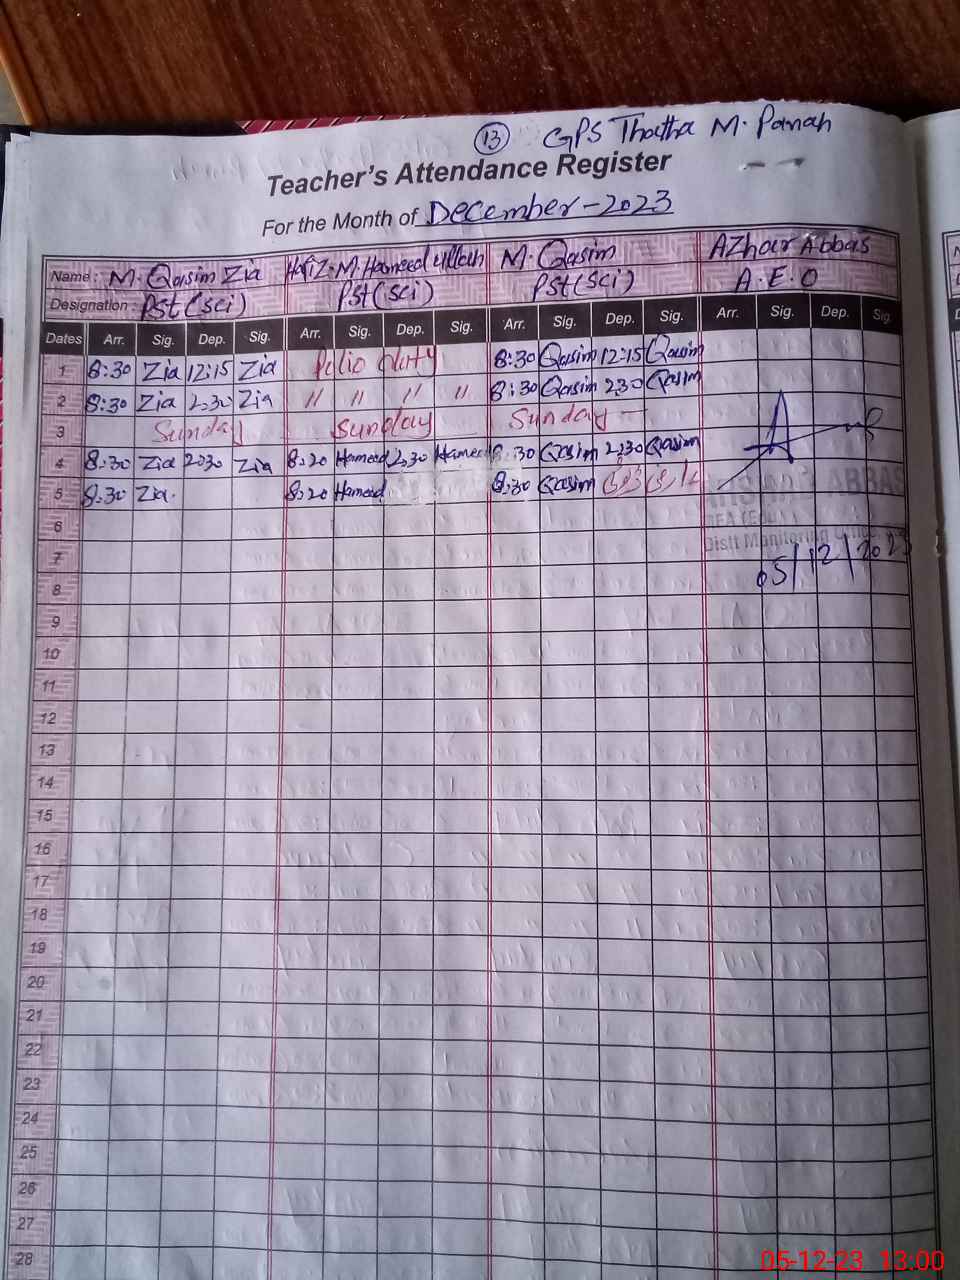 13 GPS Thatha M. Panah
Teacher's Attendance Register
For the Month of December-2023
Name: M. Qasim Zia Hafiz. M. Hameed ullah M. Qasim Azhar Abbas
Designation: Pst (sci) Pst (sci) Pst (sci) A.E.O
Dates Arr. Sig. Dep. Sig. Arr. Sig. Dep. Sig. Arr. Sig. Dep. Sig. Arr. Sig. Dep. Sig.
1 8:30 Zia 12:15 Zia Polio duty 8:30 Qasim 12:15 Qasim
2 8:30 Zia 2,30 Zia " " " " 8:30 Qasim 2,30 Qasim
3 Sunday Sunday Sunday
4 8:30 Zia 2030 Zia 8:20 Hameed 2,30 Hameed 8:30 Qasim 2,30 Qasim
5 8:30 Zia. 8:20 Hameed 8:30 Qasim
ABBAS
6
Distt Monitoring
7
05/12/2023
8
9
10
11
12
13
14
15
16
17
18
19
20
21
22
23
24
25
26
27
28
05-12-23 13:00